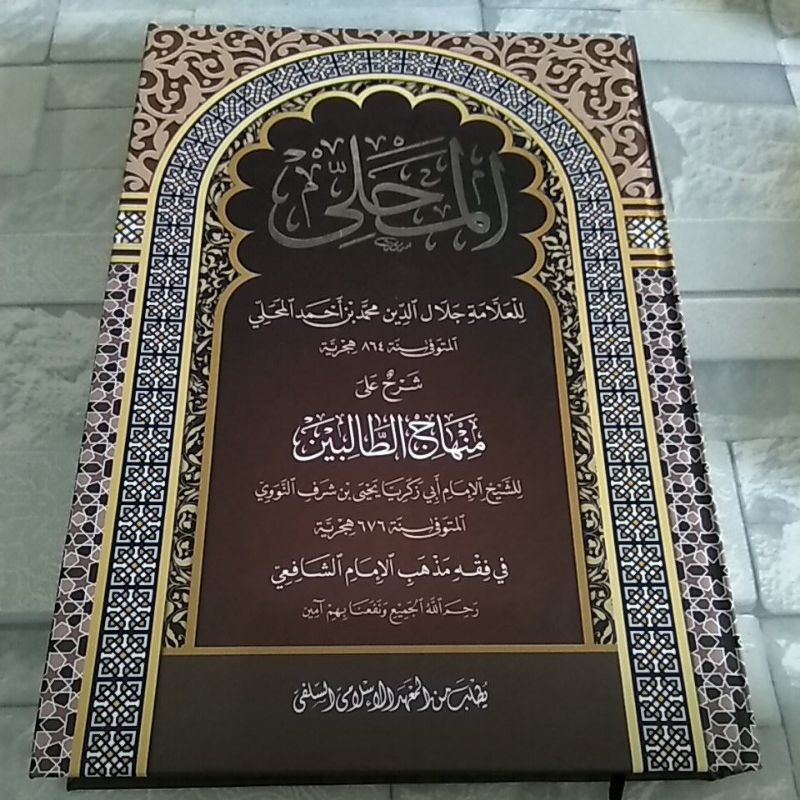 المحلي
للعلامة جلال الدين محمد بن أحمد المحلي
المتوفى سنة ٨٦٤ هجرية
شرح على
منهاج الطالبين
للشيخ الإمام أبي زكريا يحيى بن شرف النووي
المتوفى سنة ٦٧٦ هجرية
في فقه مذهب الإمام الشافعي
رحم الله الجميع ونفعنا بهم آمين
يطلب من المعهد الإسلامي السلفي